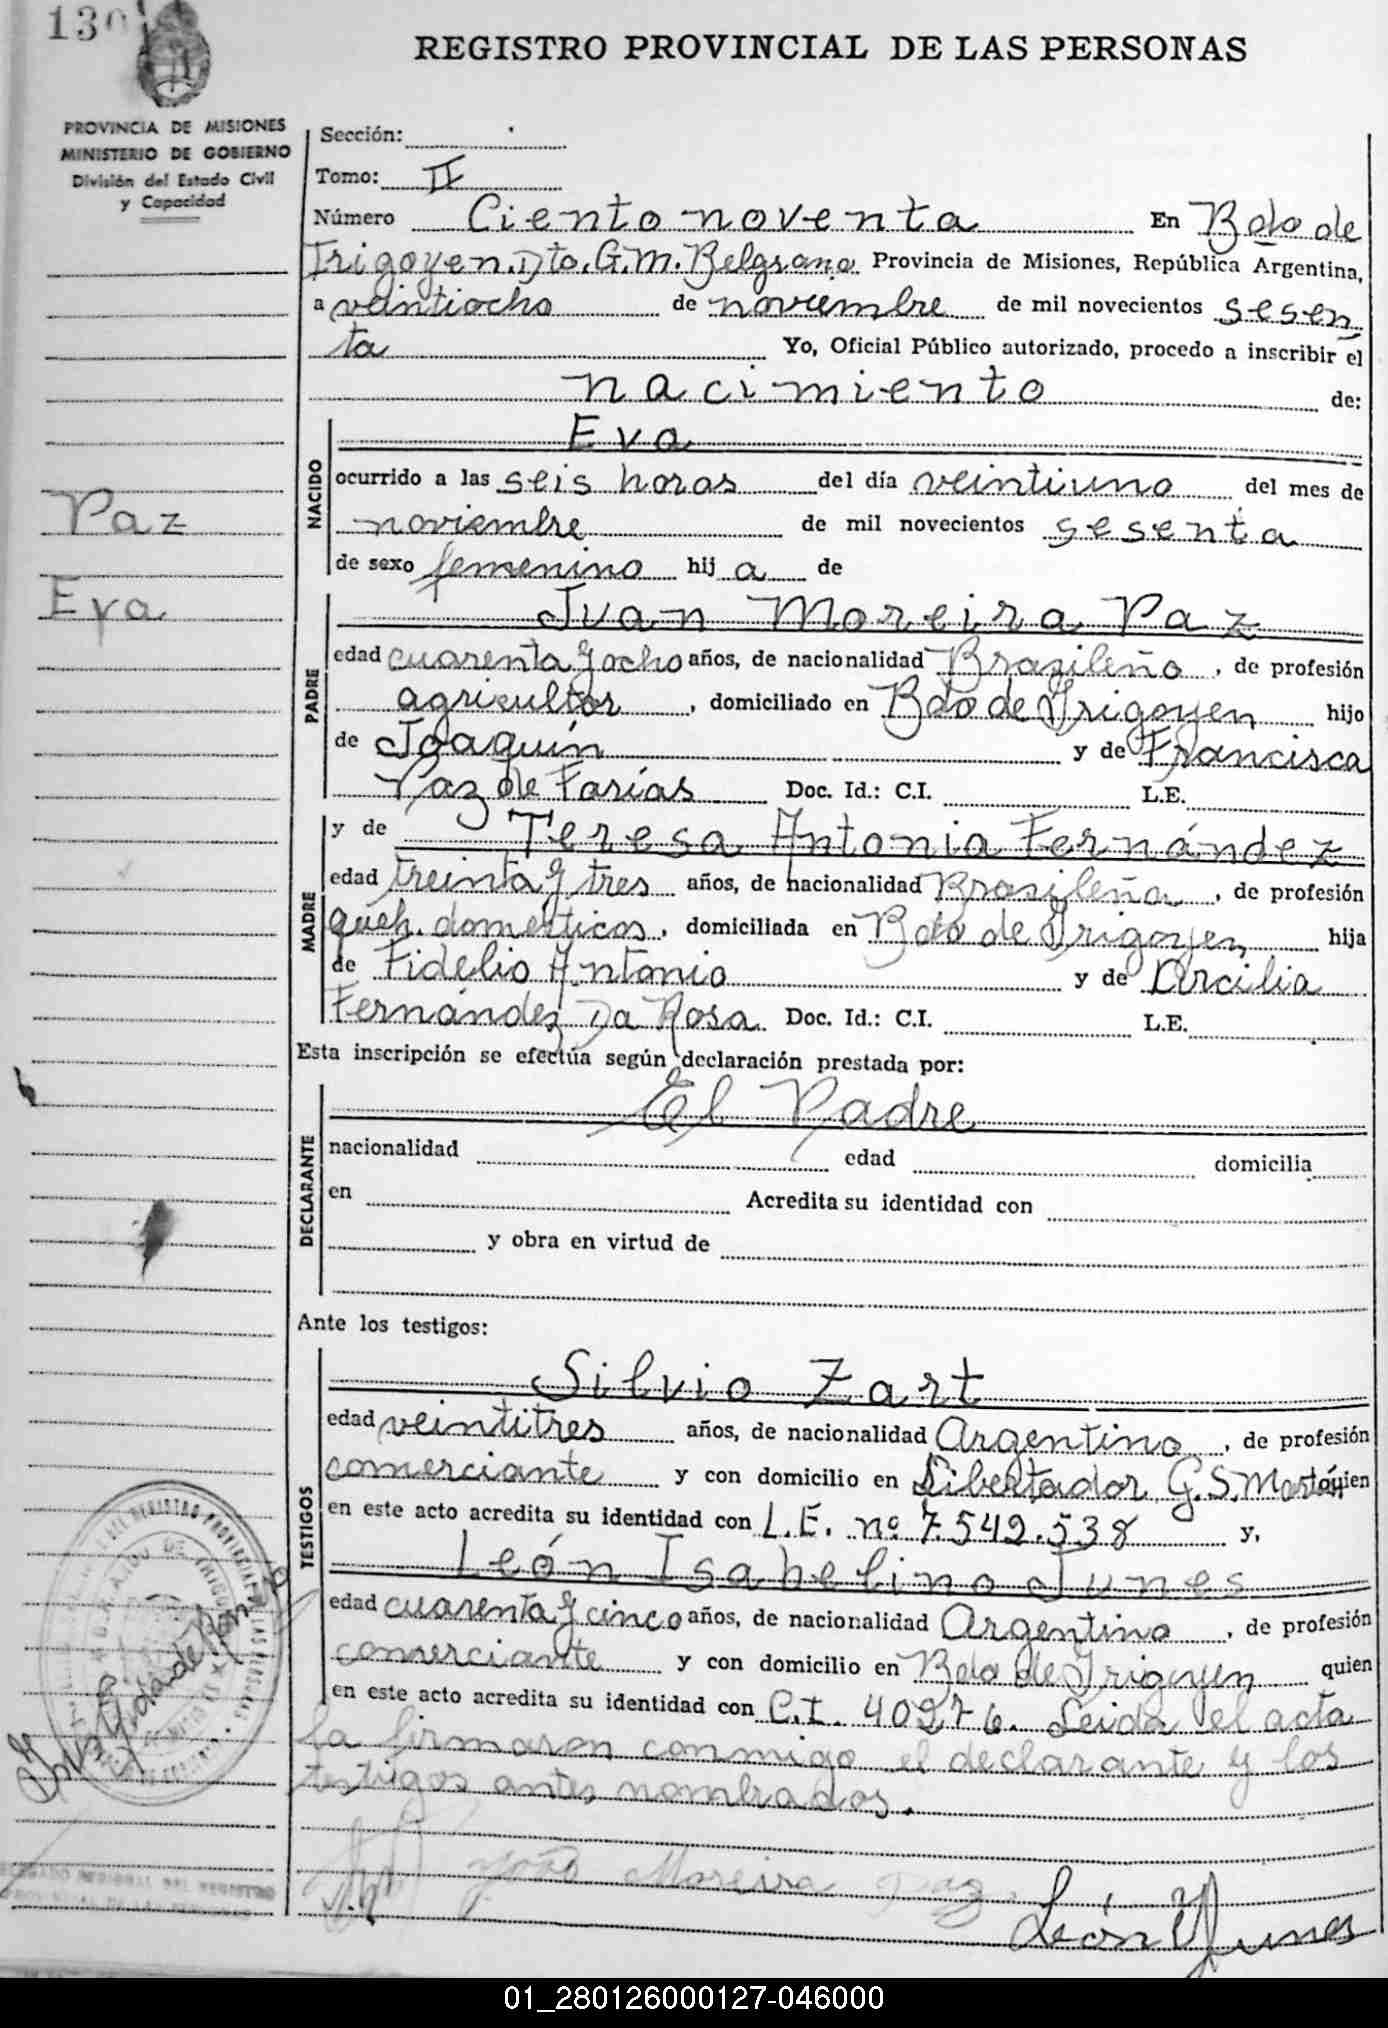 130
REGISTRO PROVINCIAL DE LAS PERSONAS
PROVINCIA DE MISIONES
MINISTERIO DE GOBIERNO
División del Estado Civil
y Capacidad
Sección:
Tomo: II
Número Ciento noventa En Bdo de
Irigoyen. Dto. G.M. Belgrano Provincia de Misiones, República Argentina,
a veintiocho de noviembre de mil novecientos sesen
ta Yo, Oficial Público autorizado, procedo a inscribir el
nacimiento de:
NACIDO
Eva
ocurrido a las seis horas del día veintiuno del mes de
noviembre de mil novecientos sesenta
de sexo femenino hij a de
Paz
Eva
PADRE
Juan Moreira Paz
edad cuarenta y ocho años, de nacionalidad Brazileño, de profesión
agricultor, domiciliado en Bdo de Irigoyen hijo
de Joaquín y de Francisca
Paz de Farías Doc. Id.: C.I. L.E.
MADRE
y de Teresa Antonia Fernández
edad treinta y tres años, de nacionalidad Brasileña, de profesión
queh. domésticos, domiciliada en Bdo de Irigoyen hija
de Fidelio Antonio y de Arcilia
Fernández Da Rosa Doc. Id.: C.I. L.E.
Esta inscripción se efectúa según declaración prestada por:
DECLARANTE
El Padre
nacionalidad edad domicilia
en Acredita su identidad con
y obra en virtud de
Ante los testigos:
TESTIGOS
Silvio Zart
edad veintitres años, de nacionalidad Argentino, de profesión
comerciante y con domicilio en Libertador G.S. Martín quien
en este acto acredita su identidad con L.E. nº 7.542.538 y,
León Isabelino Junes
edad cuarenta y cinco años, de nacionalidad Argentino, de profesión
comerciante y con domicilio en Bdo de Irigoyen quien
en este acto acredita su identidad con C.I. 40276. Leida el acta
la firmaron conmigo el declarante y los
testigos antes nombrados.
João Moreira Paz
León Yunes
01_280126000127-046000